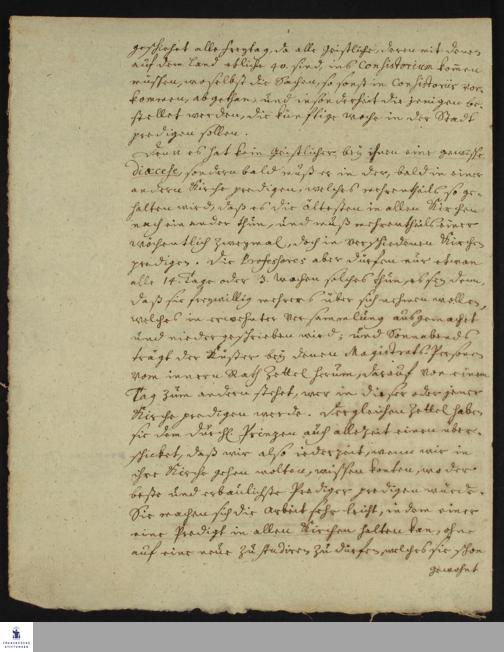 geschiehet alle Freytag, da alle Geistliche, deren mit denen
auf dem Land etliche 40. sind, ins Consistorium kommen
müssen, woselbst die Sachen, so sonst in Consistoriis vor-
kommen, abgethan, und insonderheit die jenigen be-
stellet werden, die künftige Woche in der Stadt
predigen sollen.
Denn es hat kein Geistlicher bey ihnen eine gewisse
Dioecese, sondern bald muß er in der, bald in einer
andern Kirche predigen, welches mehrentheils so ge-
halten wird, daß es die Ältesten in allen Kirchen
nach ein ander thun, und muß mehrentheils einer
wöchentlich zweymal, doch in verschiedenen Kirchen
predigen. Die Professores aber dürfen nur etwan
alle 14. Tage oder 3. Wochen solches thun, es sey denn,
daß sie freywillig mehrers über sich nehmen wollen,
welches in erwehnter Versammlung ausgemacht
und niedergeschrieben wird; und Sonnabends
trägt der Küster bey denen Magistrats-Personen
vom innern Rath Zettel herum, darauf von einem
Tag zum andern stehet, wer in dieser oder jener
Kirche predigen werde. Dergleichen Zettel haben
sie dem Durchl. Prinzen auch allezeit einen über-
schicket, daß wir also iederzeit, wenn wir in
ihre Kirche gehen wolten, wissen konten, wo der
beste und erbaulichste Prediger predigen würde.
Sie machen sich die Arbeit sehr leicht, indem einer
eine Predigt in allen Kirchen halten kan, ohne
auf eine neue zu studiren zu dürfen, welches sie schon
gewohnt
FRANCKESCHE
STIFTUNGEN